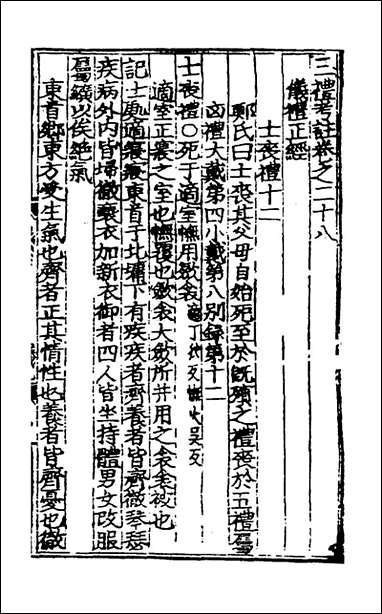 三禮考註卷之二十八
儀禮正經
士喪禮十二
鄭氏曰士喪其父母自始死至於既殯之禮喪於五禮屬
凶禮大戴第四小戴第八別録第十二
士喪禮○死于適室幠用斂衾適丁狄反幠火吳反
適室正寢之室也幠覆也斂衾大斂所并用之衾衾被也
記士處適寢寢東首于北墉下有疾疾者齊養者皆齊徹琴瑟
疾病外内皆埽徹褻衣加新衣御者四人皆坐持體男女改服
屬纊以俟絶氣
東首鄉東方受生氣也齊者正其情性也養者皆齊憂也徹